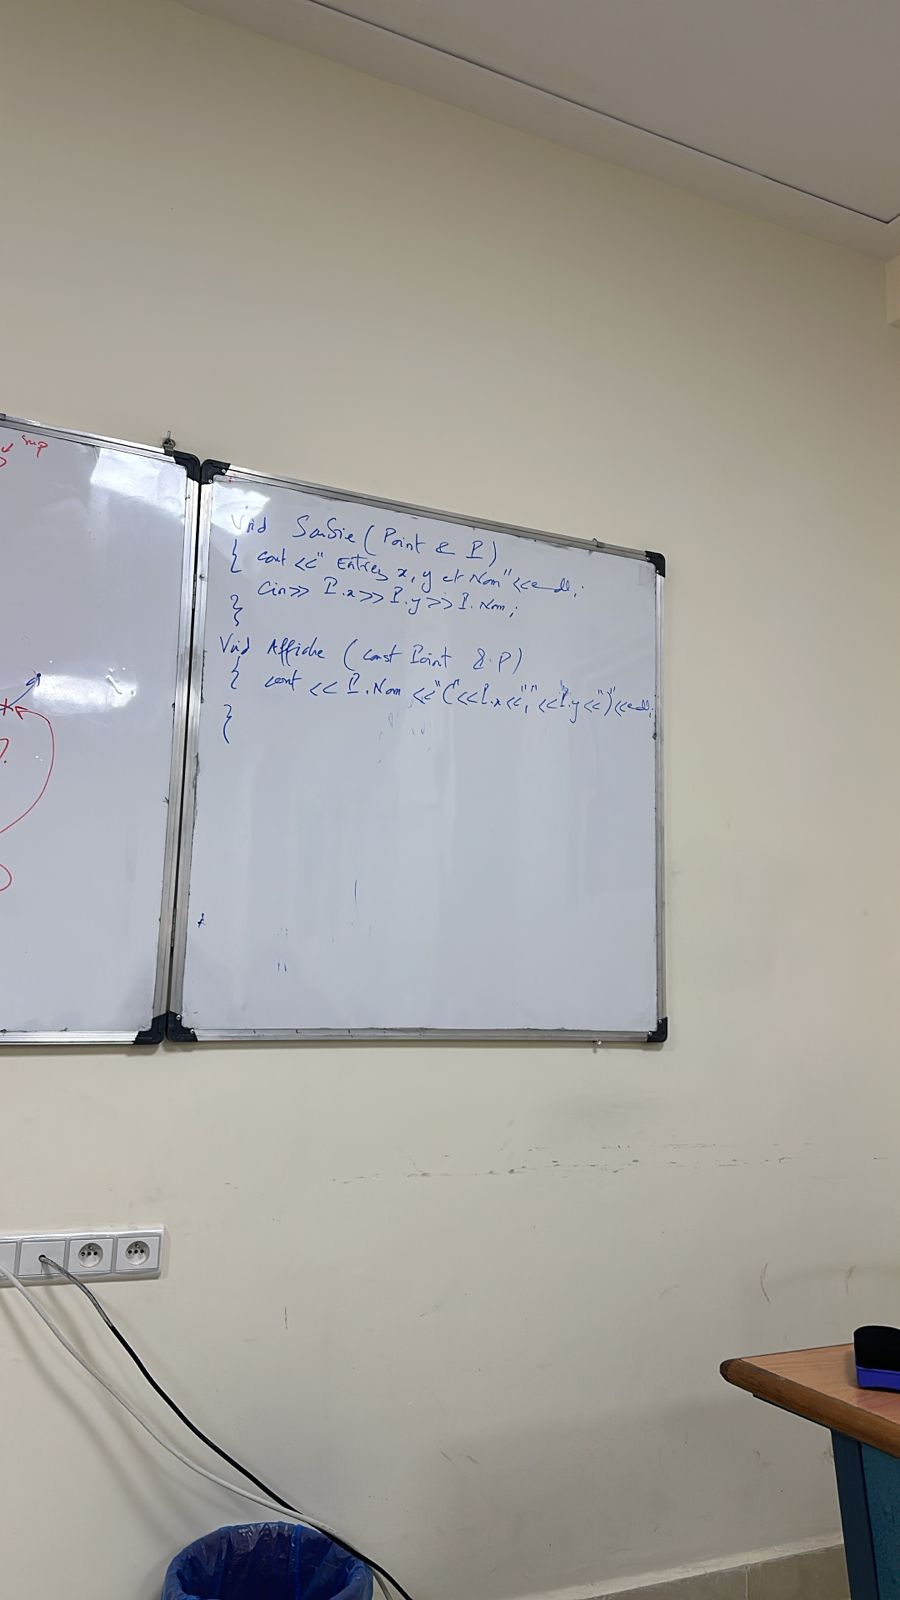 Sup
Void Saisie ( Point & P )
{ cout << " Entrez x, y et Nom" << endl ;
cin >> P.x >> P.y >> P.Nom ;
}
Void Affiche ( const Point & P )
{ cout << P.Nom << "(" << P.x << "," << P.y << ")" << endl ;
}